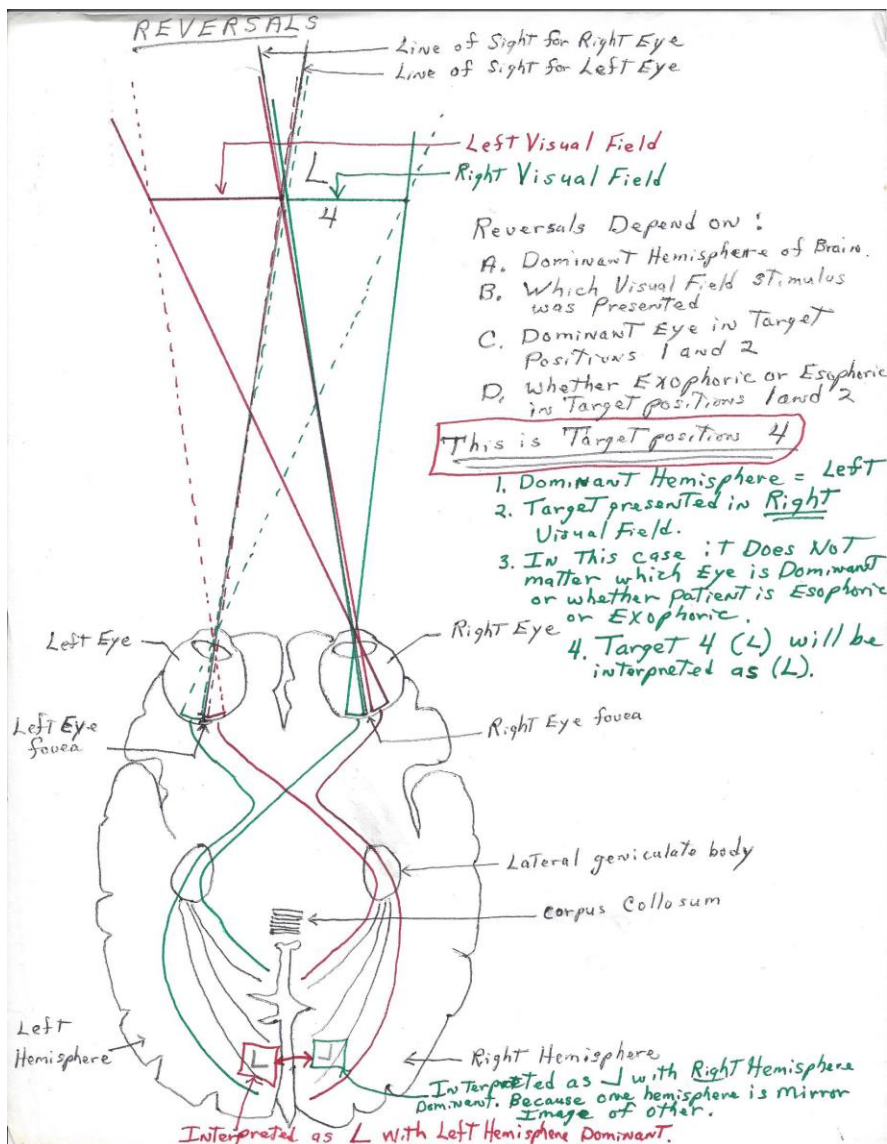 REVERSALS
Line of Sight for Right Eye
Line of Sight for Left Eye
Left Visual Field
Right Visual Field
L
4
Reversals Depend on:
A. Dominant Hemisphere of Brain.
B. Which Visual Field Stimulus
was Presented
C. Dominant Eye in Target
Positions 1 and 2
D. Whether Exophoric or Esophoric
in Target positions 1 and 2
This is Target position 4
1. Dominant Hemisphere = Left
2. Target presented in Right
Visual Field.
3. In This case it Does Not
matter which Eye is Dominant
or whether patient is Esophoric
or Exophoric.
4. Target 4 (L) will be
interpreted as (L).
Left Eye
Right Eye
Left Eye
fovea
Right Eye fovea
Lateral geniculate body
Corpus Collosum
Left
Hemisphere
L
Right Hemisphere
Interpreted as ⅃ with Right Hemisphere
Dominant. Because one hemisphere is mirror
Image of other.
Interpreted as L with Left Hemisphere Dominant.